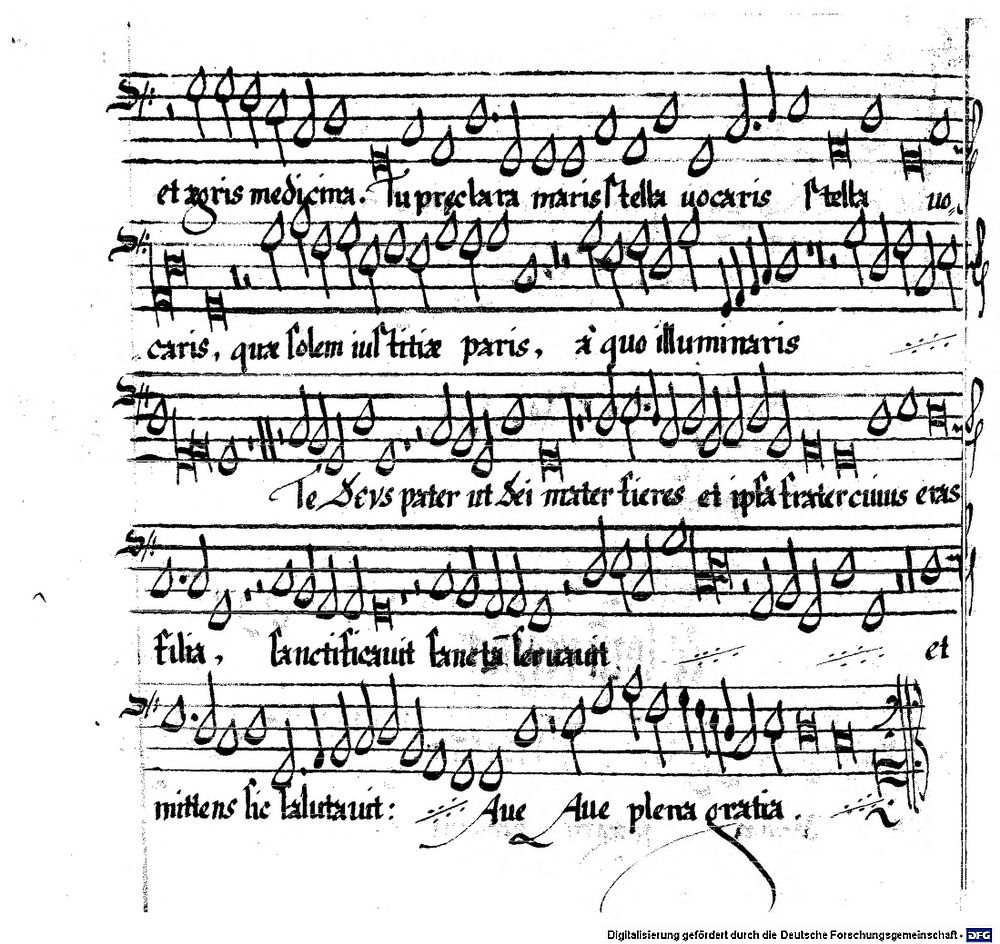 et ægris medicina. Tu pręclara maris stella uocaris stella uo
caris, quæ solem iustitiæ paris, à quo illuminaris
Te Devs pater ut Dei mater fieres et ipsa frater cuius eras
filia, sanctificauit sanctā seruauit et
mittens sic salutauit: Aue Aue plena gratia.
Digitalisierung gefördert durch die Deutsche Forschungsgemeinschaft - DFG